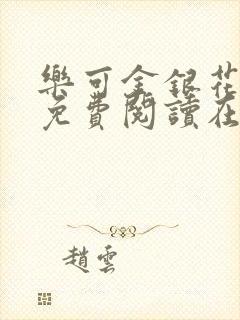 樂可金銀花
免費閱讀在
趙雲